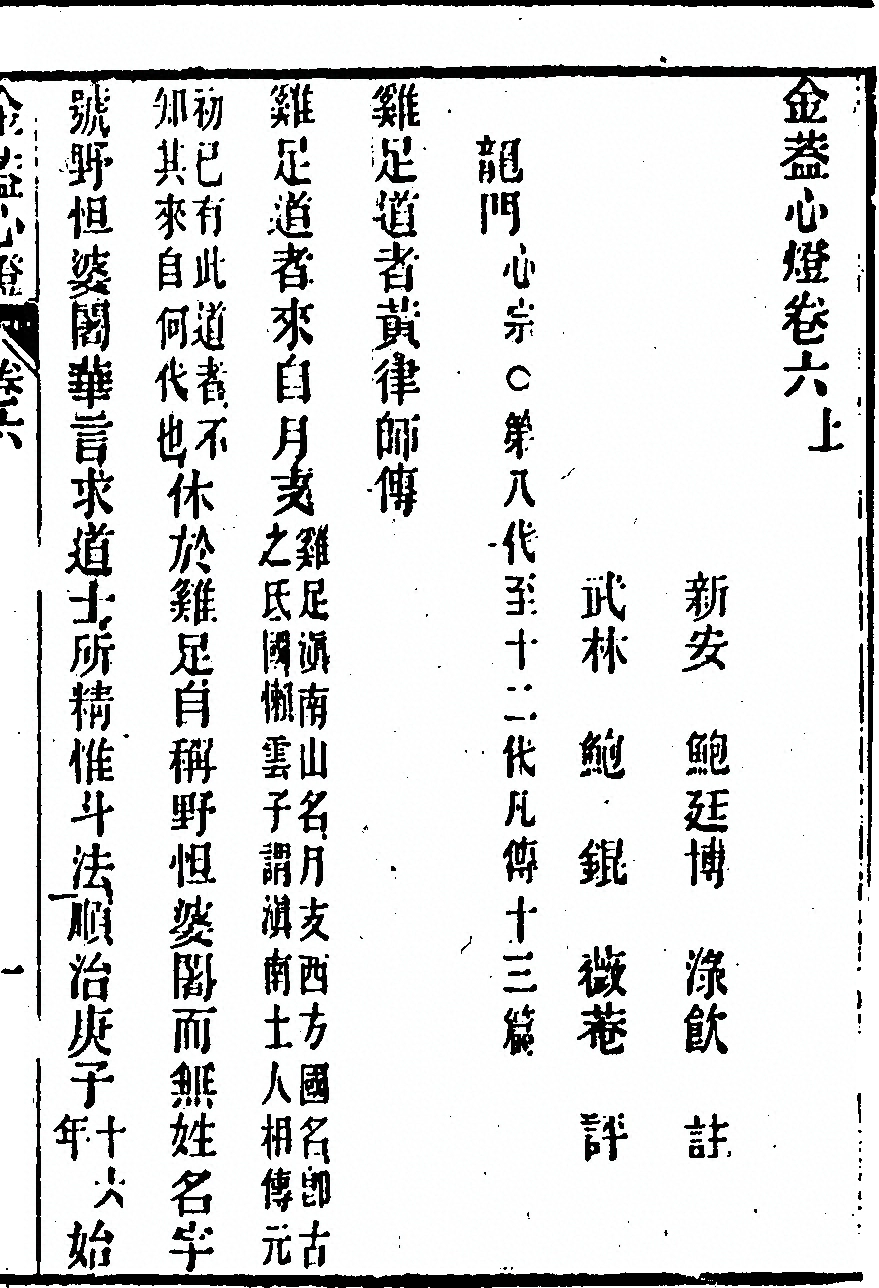 金蓋心燈卷六上
新安　鮑廷博　淥飲　註
武林　鮑　錕　薇菴　評
龍門心宗○第八代至十二代凡傳十三篇
雞足道者黃律師傳
雞足道者來自月支雞足滇南山名月支西方國名卽古之氐國懶雲子謂滇南土人相傳元
初已有此道者不知其來自何代也休於雞足自稱野怛婆闍而無姓名字
號野怛婆闍華言求道士所精惟斗法順治庚子十六年始
金蓋心燈　卷六　一